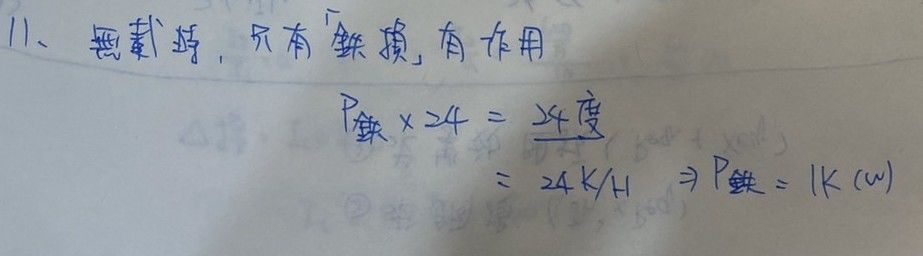 11、無載時,只有「鉄損」有作用
P鉄 × 24 = 24度
= 24K/H ⇒ P鉄 = 1K (W)